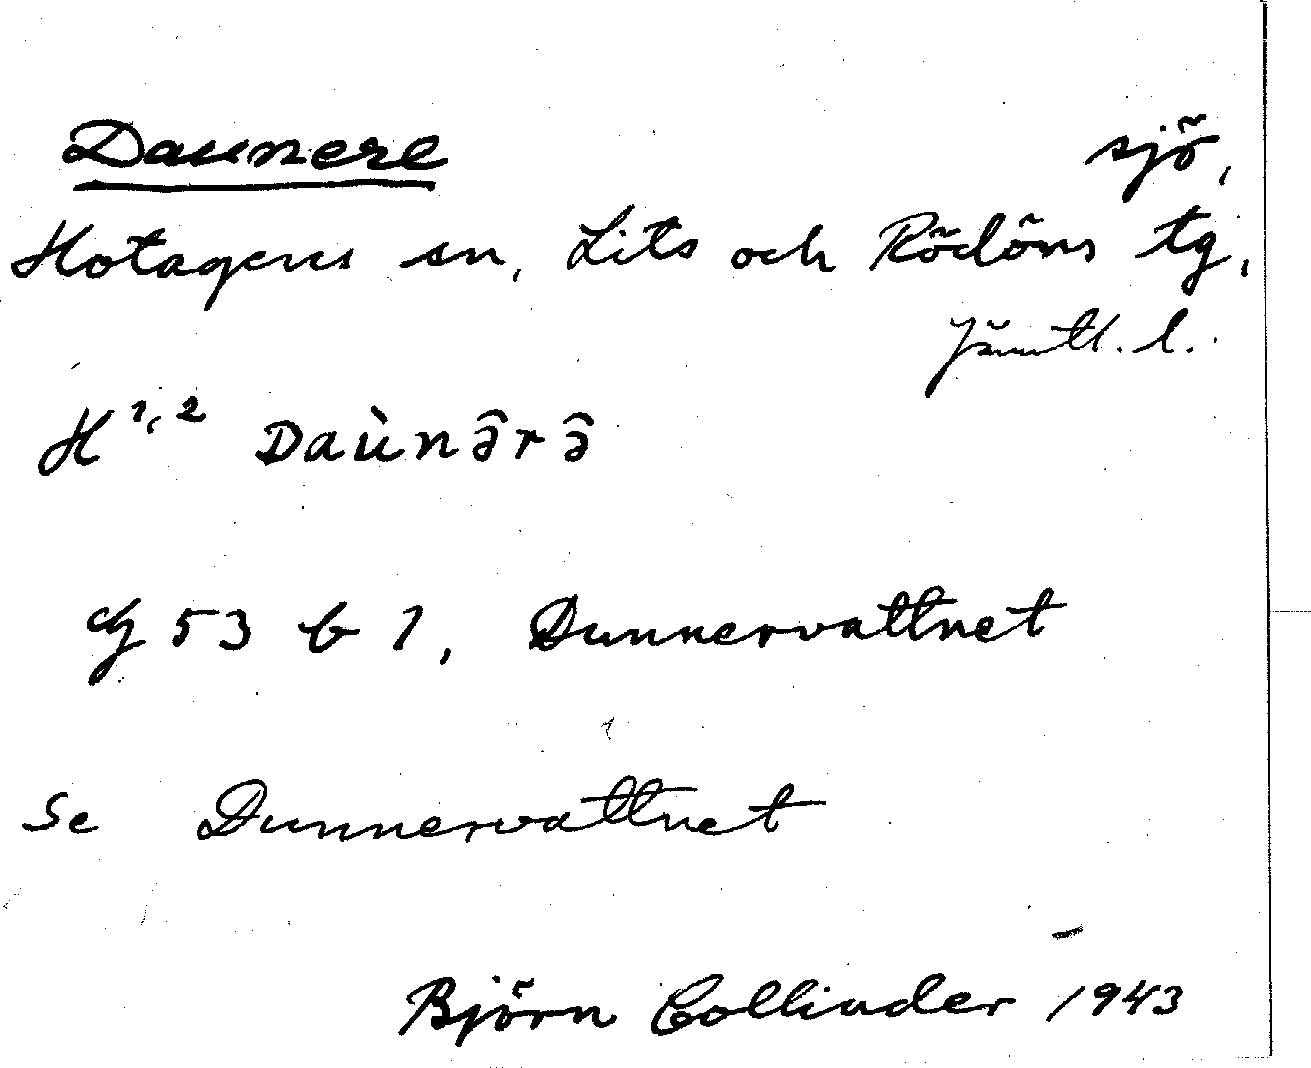 Daunere sjö,
Hotagens sn, Lits och Rödöns tg,
Jämtl. l.
H 1, 2 Daùnə̂rə̂
G 53 b 1, Dunnervattnet
Se Dunnervattnet
Björn Collinder 1943